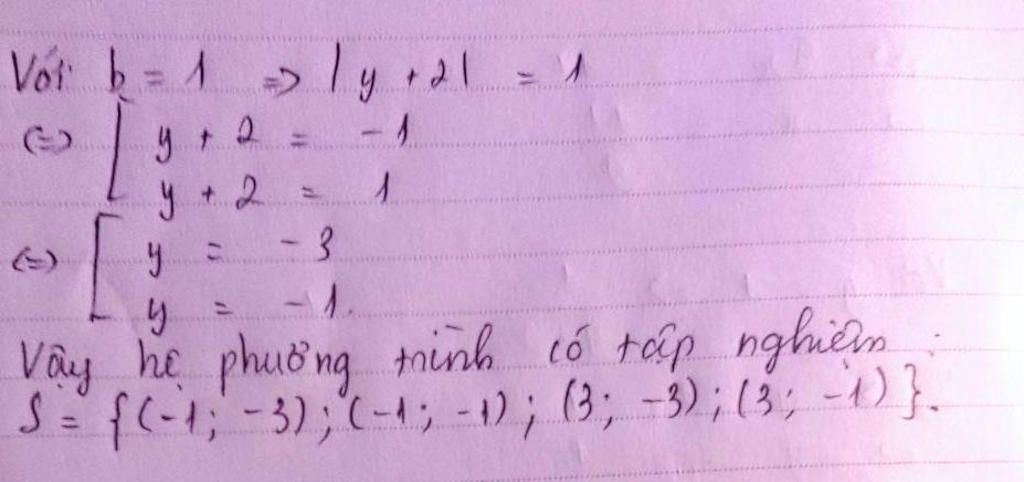 Với b = 1 => |y + 2| = 1
(=) [ y + 2 = -1
y + 2 = 1
(=) [ y = -3
y = -1.
Vậy hệ phương trình có tập nghiệm :
S = {(-1; -3); (-1; -1); (3; -3); (3; -1)}.